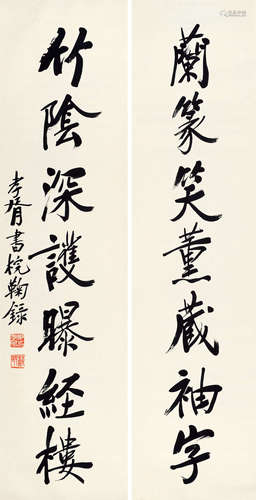 蘭篆笑薰藏袖字
竹陰深護曝経樓
孝胥書梡鞠録